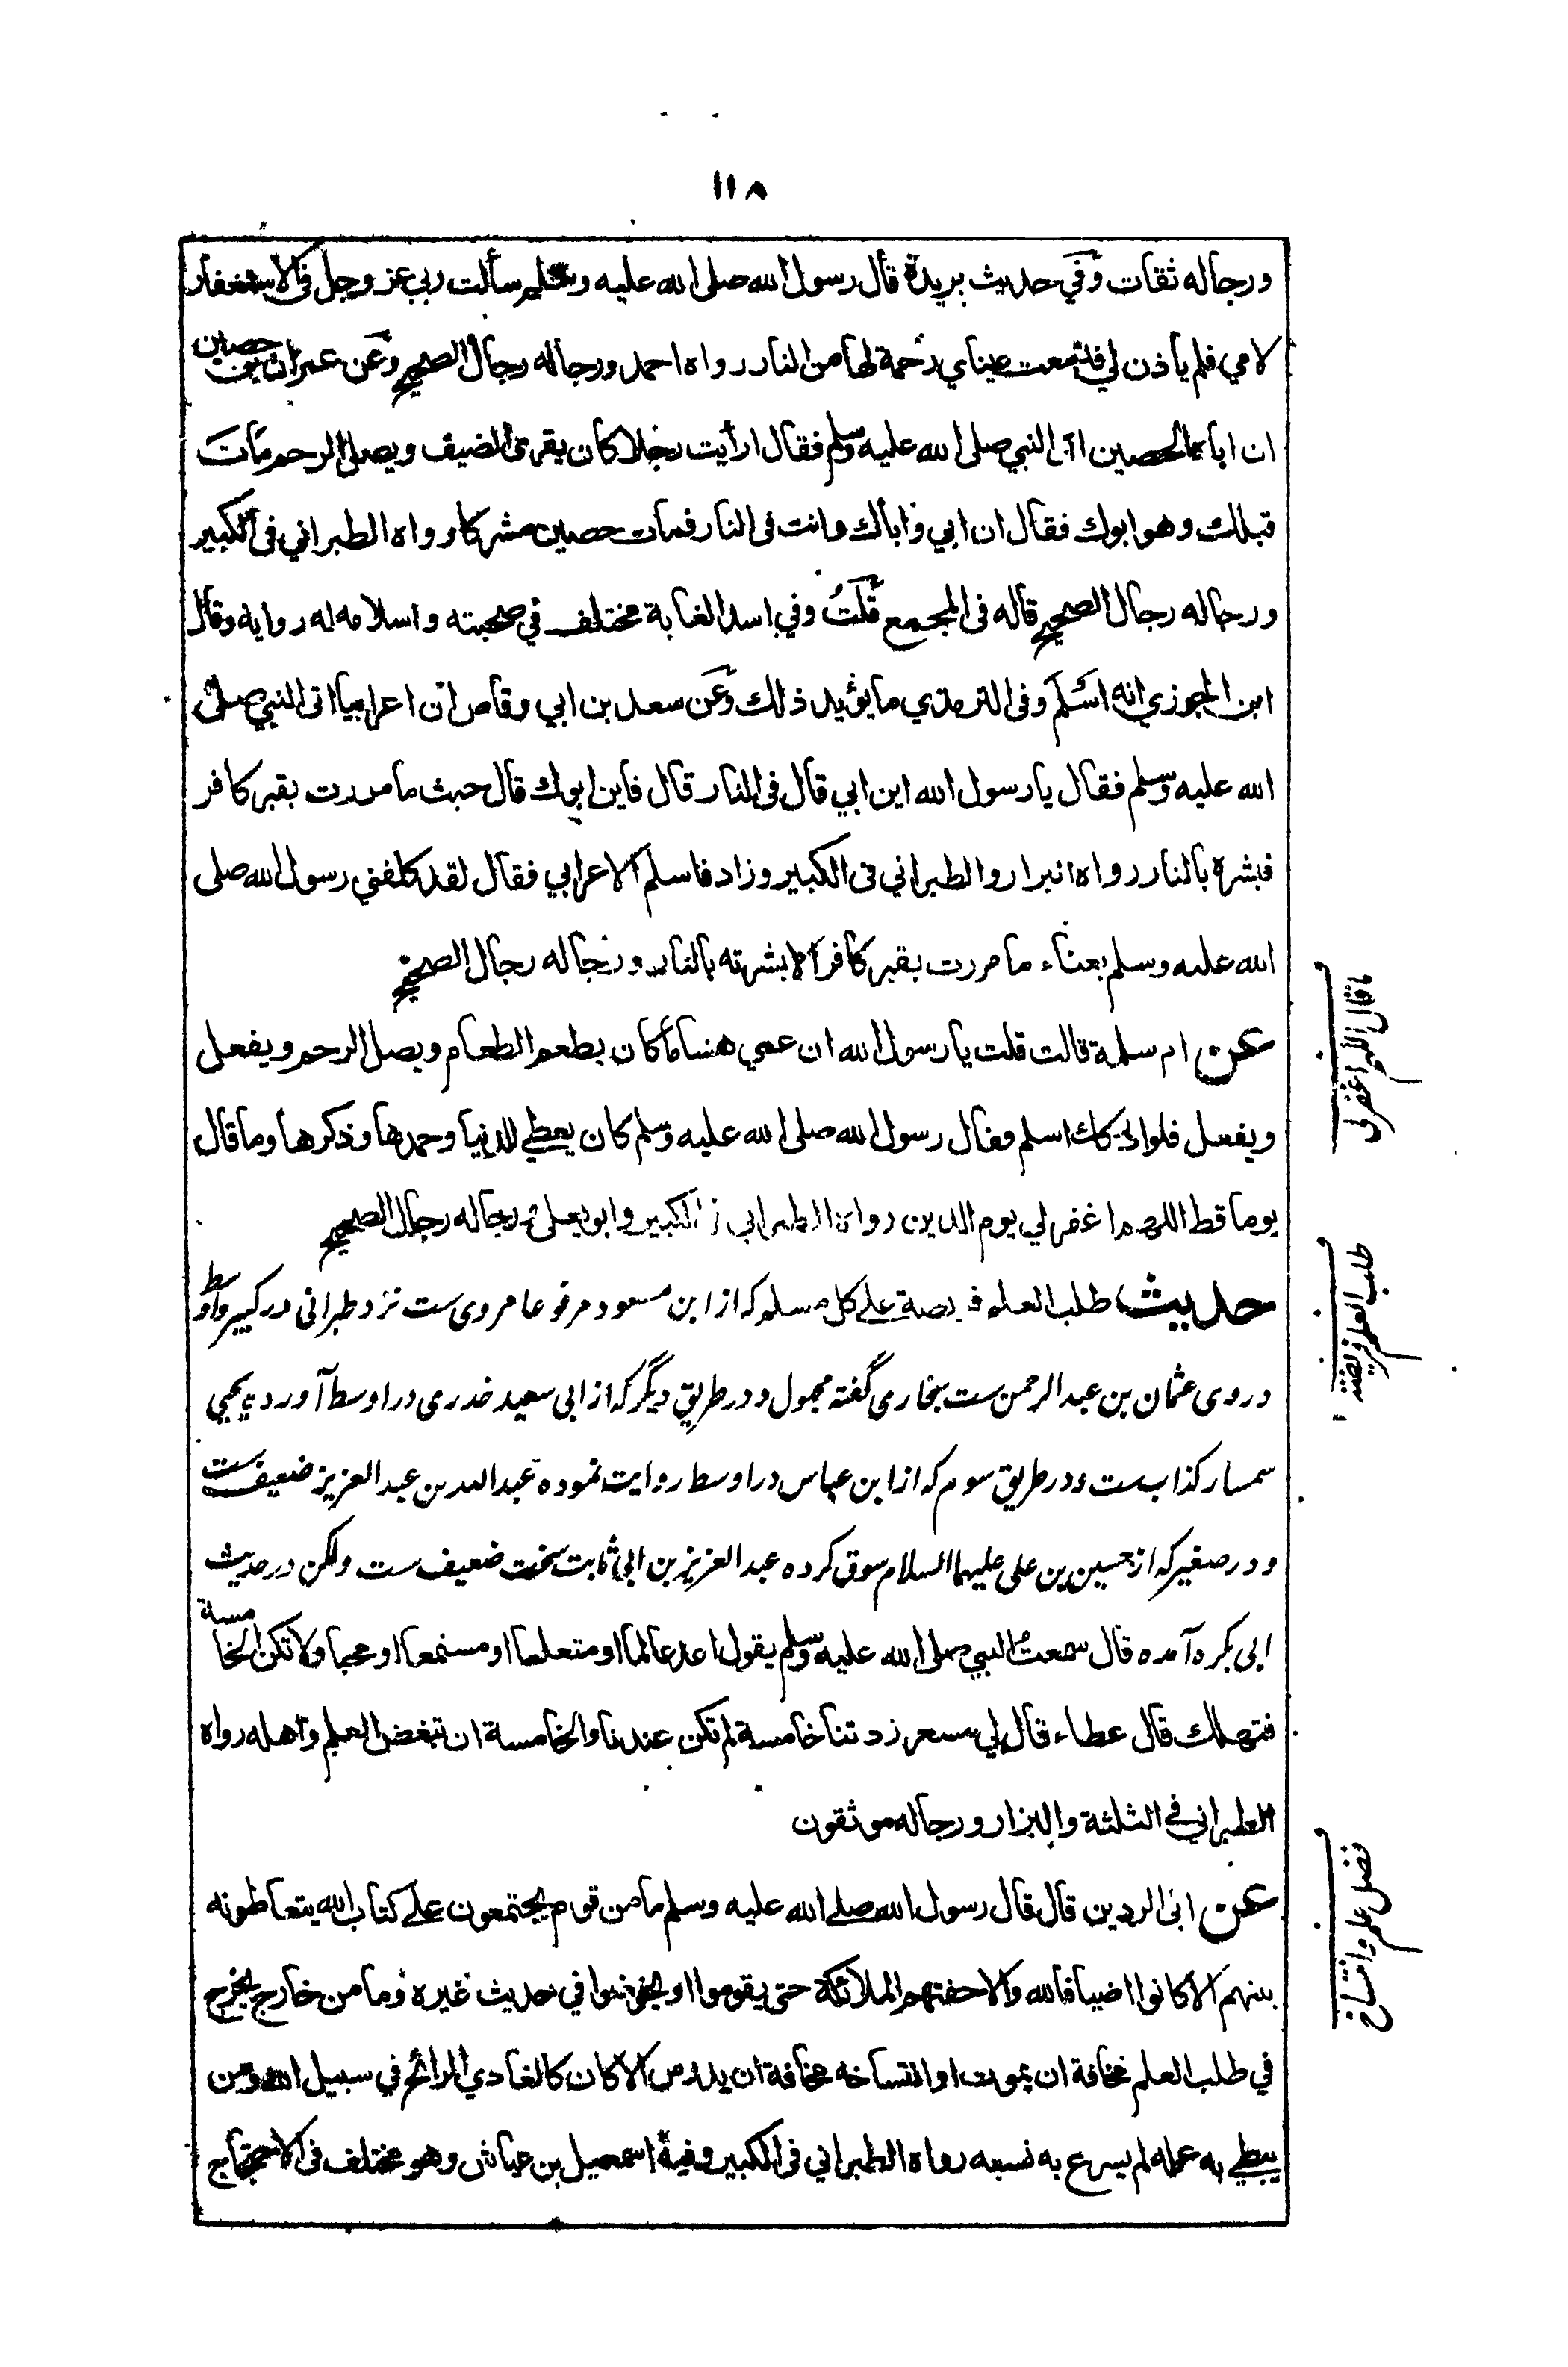 ١١٨
ورجاله ثقات وفي حديث بريدة قال رسول الله صلى الله عليه وسلم سألت ربي عز وجل في الاستغفار
لامي فلم ياذن لي فدمعت عيناي رحمة لها من النار رواه احمد ورجاله رجال الصحيح وعن عمران بن حصين
ان اباه الحصين اتى النبي صلى الله عليه وسلم فقال ارأيت رجلا كان يقرئ الضيف ويصل الرحم مات
قبلك وهو ابوك فقال ان ابي واباك وانت في النار فمات حصين مشركا رواه الطبراني في الكبير
ورجاله رجال الصحيح قاله في المجمع قلت وفي اسد الغابة مختلف في صحبته واسلامه له رواية وقال
ابن الجوزي انه اسلم وفي الترمذي ما يؤيد ذلك وعن سعد بن ابي وقاص ان اعرابيا اتى النبي صلى
الله عليه وسلم فقال يا رسول الله اين ابي قال في النار قال فاين ابوك قال حيث ما مررت بقبر كافر
فبشره بالنار رواه البزار والطبراني في الكبير وزاد فاسلم الاعرابي فقال لقد كلفني رسول الله صلى
الله عليه وسلم بعناء ما مررت بقبر كافر الا بشرته بالنار ورجاله رجال الصحيح
عن ام سلمة قالت قلت يا رسول الله ان عمي هشاما كان يطعم الطعام ويصل الرحم ويفعل
ويفعل فلو ادركك اسلم فقال رسول الله صلى الله عليه وسلم كان يعطي للدنيا وحمدها وذكرها وما قال
يوما قط اللهم اغفر لي يوم الدين رواه الطبراني في الكبير وابو يعلى ورجاله رجال الصحيح
حديث طلب العلم فريصة علے كل مسلم كہ از ابن مسعود مرفوعا مروی ست نزد طبرانی در كبیر واوسط
دروی عثمان بن عبد الرحمن ست بخاری گفتہ مجهول ودر طریق دیگر كہ از ابی سعید خدری در اوسط آوردہ یحیی
سمسار كذاب ست ودر طریق سوم كہ از ابن عباس در اوسط روایت نمودہ عبد اللہ بن عبد العزیز ضعیف ست
ودر صغیر كہ از حسین بن علی علیهما السلام سوق كردہ عبد العزیز بن ابی ثابت سخت ضعیف ست ولكن در حدیث
ابی بكرہ آمدہ قال سمعت النبي صلى الله عليه وسلم يقول اغد عالما او متعلما او مستمعا او محبا ولا تكن الخامسة
فتهلك قال عطاء قال لي مسعر زدتنا خامسة لم تكن عندنا والخامسة ان تبغض العلم واهله رواه
الطبراني في الثلثة والبزار ورجاله موثقون
عن ابي الردين قال قال رسول الله صلے الله عليه وسلم ما من قوم يجتمعون علے كتاب الله يتعاطونه
بينهم الا كانوا اضيافا لله والا حفتهم الملائكة حتى يقوموا او يخوضوا في حديث غيره وما من خارج يخرج
في طلب العلم مخافة ان يموت او انتساخه مخافة ان يدرس الا كان كالغادي الرائح في سبيل الله ومن
يبطي به عمله لم يسرع به نسبه رواه الطبراني في الكبير وفيه اسمعيل بن عياش وهو مختلف في الاحتجاج
ما قال اللهم اغفر لی
طلب العلم فريضة
فضل علم وانتساخ